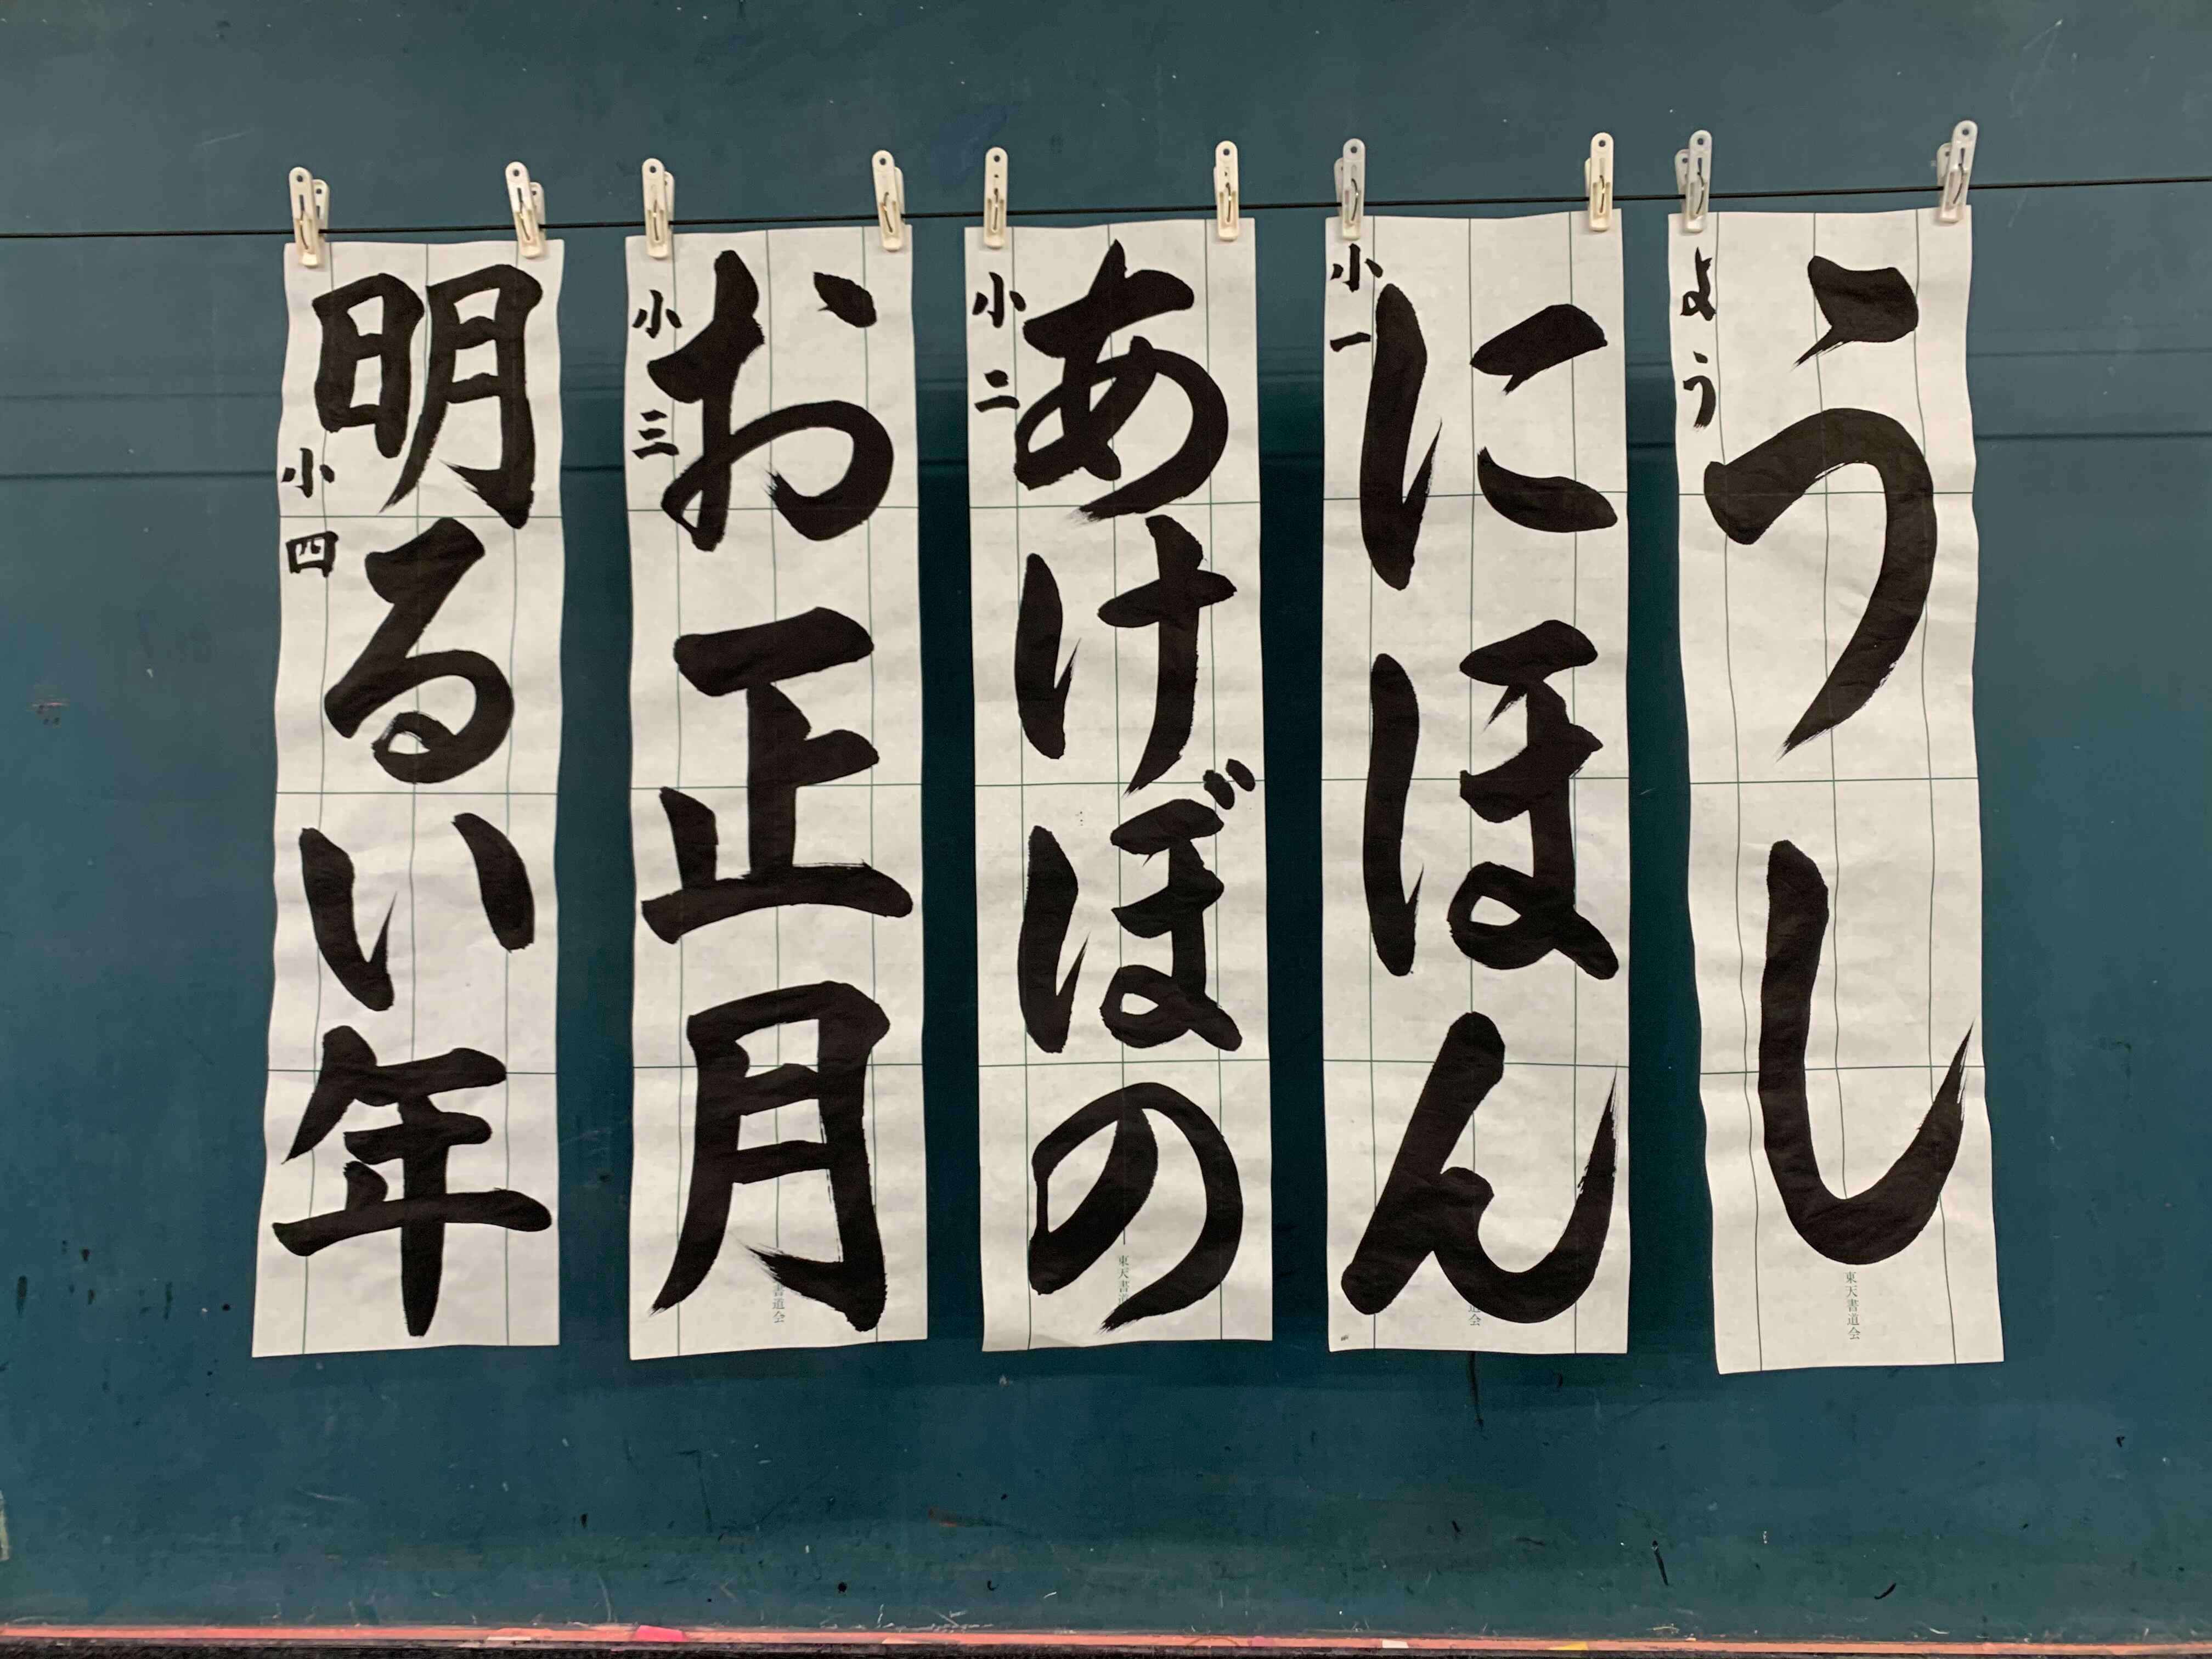 うし
よう
東天書道会
にほん
小一
道会
あけぼの
小二
東天書道
お正月
小三
書道会
明るい年
小四